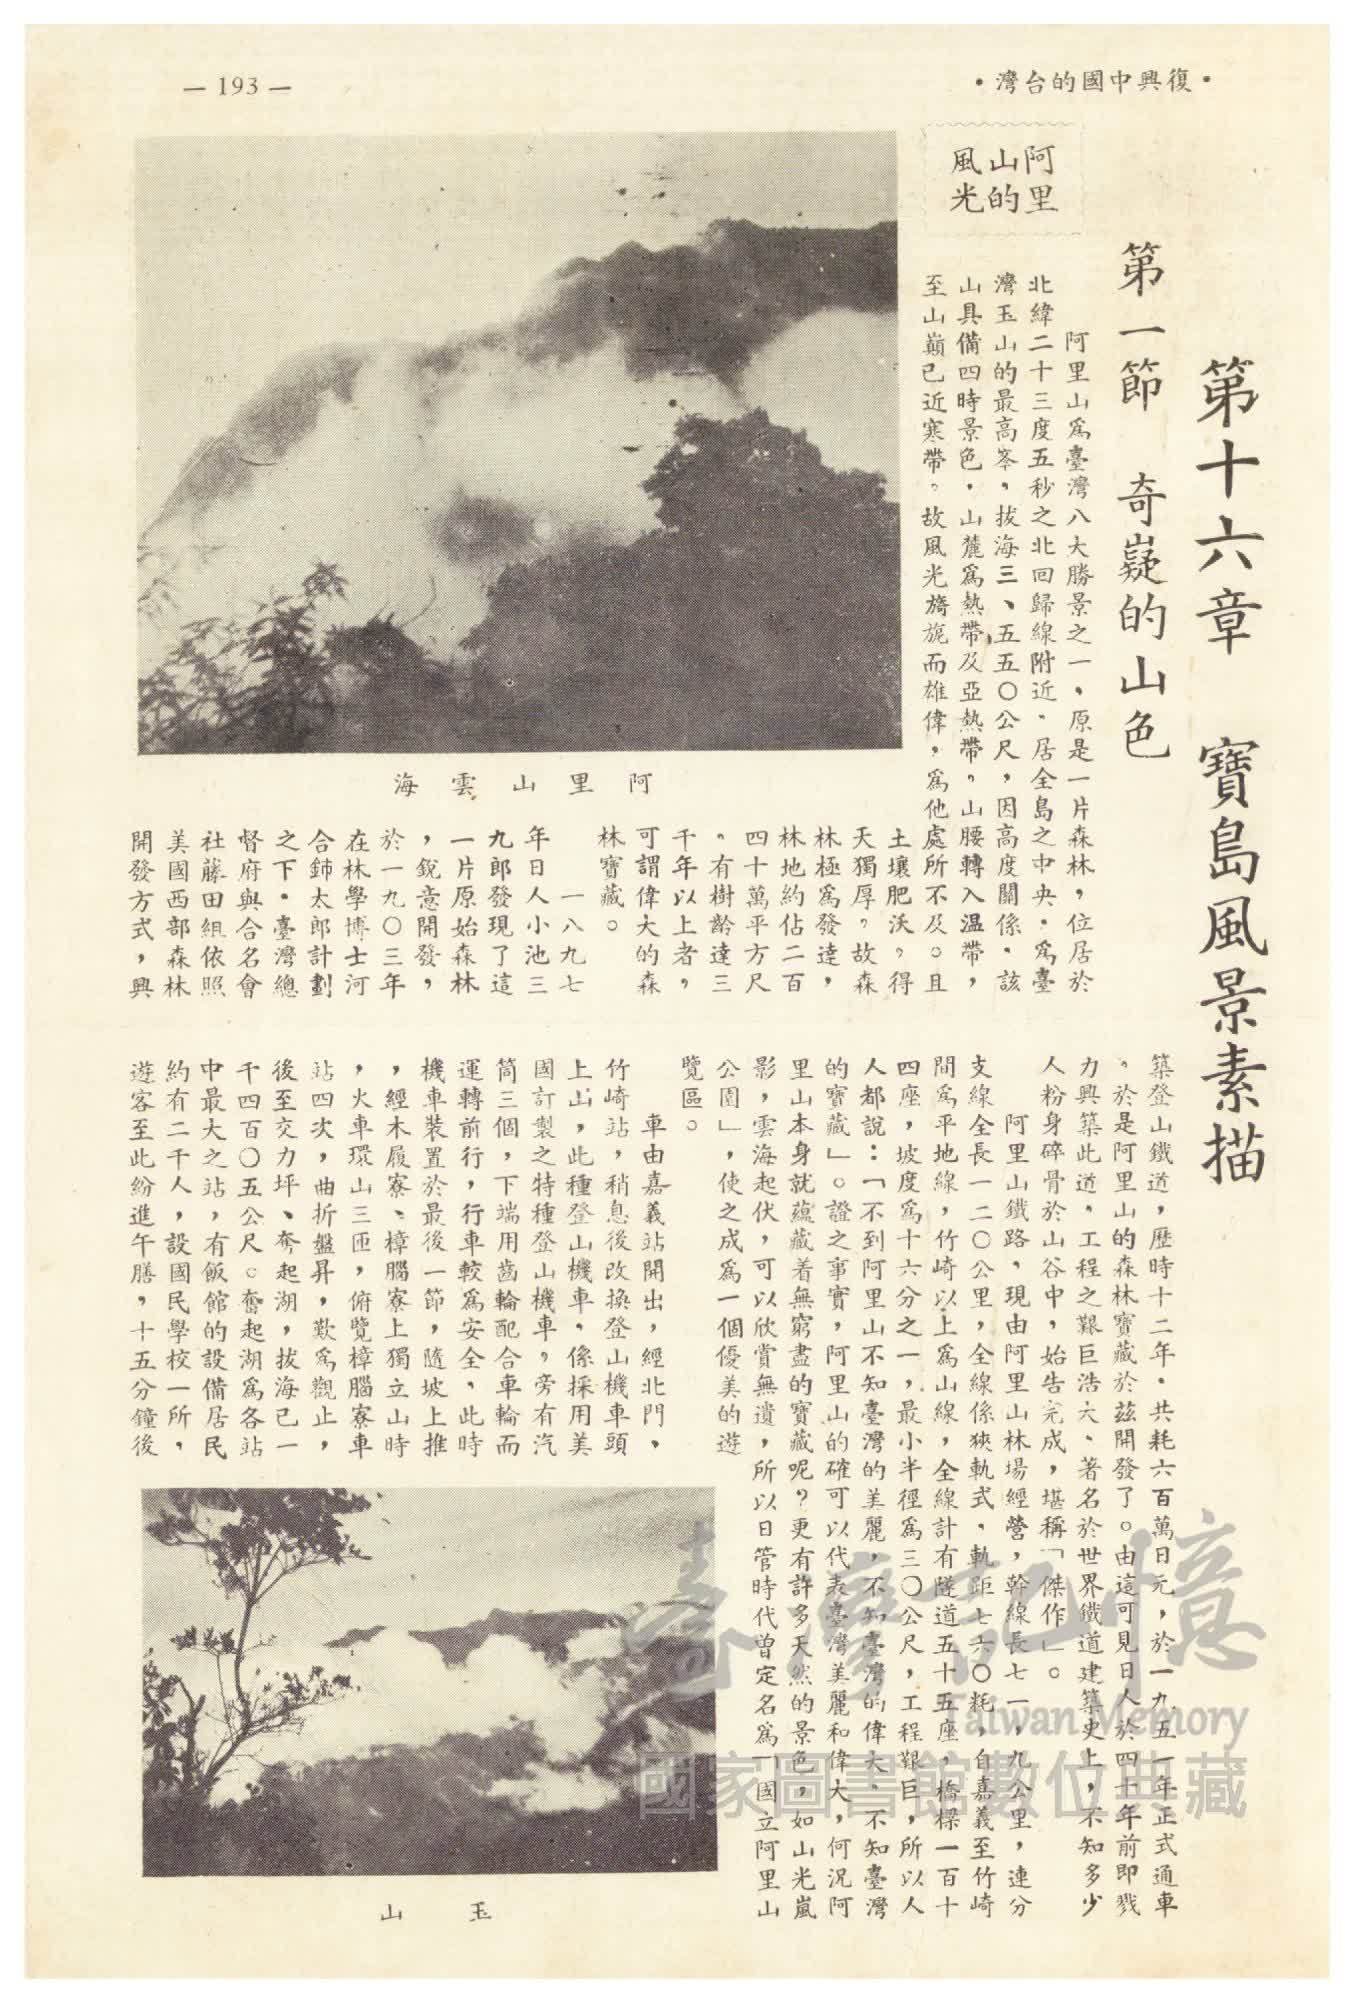 •復興中國的台灣•
— 193 —
第十六章　寶島風景素描
第一節　奇嶷的山色
阿里
山的
風光
阿里山爲臺灣八大勝景之一、原是一片森林，位居於
北緯二十三度五秒之北回歸線附近、居全島之中央．爲臺
灣玉山的最高峯，拔海三、五五〇公尺，因高度關係．該
山具備四時景色，山麓爲熱帶及亞熱帶，山腰轉入溫帶，
至山巔已近寒帶。故風光旖旎而雄偉，爲他處所不及。且
土壤肥沃，得
天獨厚，故森
林極爲發達，
林地約佔二百
四十萬平方尺
。有樹齡達三
千年以上者，
可謂偉大的森
林寶藏。
一八九七
年日人小池三
九郎發現了這
一片原始森林
，銳意開發，
於一九〇三年
在林學博士河
合鈰太郎計劃
之下．臺灣總
督府與合名會
社藤田組依照
美國西部森林
開發方式，興
阿里山雲海
築登山鐵道，歷時十二年．共耗六百萬日元，於一九五一年正式通車
。於是阿里山的森林寶藏於茲開發了。由這可見日人於四十年前即戮
力興築此道，工程之艱巨浩大、著名於世界鐵道建築史上，不知多少
人粉身碎骨於山谷中，始告完成，堪稱「傑作」。
阿里山鐵路，現由阿里山林場經營，幹線長七一，九公里，連分
支線全長一二〇公里，全線係狹軌式，軌距七六〇粍，自嘉義至竹崎
間爲平地線，竹崎以上爲山線，全線計有隧道五十五座，橋樑一百十
四座，坡度爲十六分之一，最小半徑爲三〇公尺，工程艱巨，所以人
人都說：「不到阿里山不知臺灣的美麗，不知臺灣的偉大、不知臺灣
的寶藏」。證之事實，阿里山的確可以代表臺灣美麗和偉大，何況阿
里山本身就蘊藏着無窮盡的寶藏呢？更有許多天然的景色，如山光嵐
影，雲海起伏，可以欣賞無遺，所以日管時代曾定名爲「國立阿里山
公園」，使之成爲一個優美的遊
覽區。
車由嘉義站開出，經北門、
竹崎站，稍息後改換登山機車頭
上山，此種登山機車，係採用美
國訂製之特種登山機車，旁有汽
筒三個，下端用齒輪配合車輪而
運轉前行，行車較爲安全，此時
機車裝置於最後一節，隨坡上推
，經木履寮、樟腦寮上獨立山時
，火車環山三匝，俯覽樟腦寮車
站四次，曲折盤昇，歎爲觀止，
後至交力坪、奔起湖，拔海已一
千四百〇五公尺。奮起湖爲各站
中最大之站，有飯館的設備居民
約有二千人，設國民學校一所，
遊客至此紛進午膳，十五分鐘後
玉山
臺灣記憶
Taiwan Memory
國家圖書館數位典藏